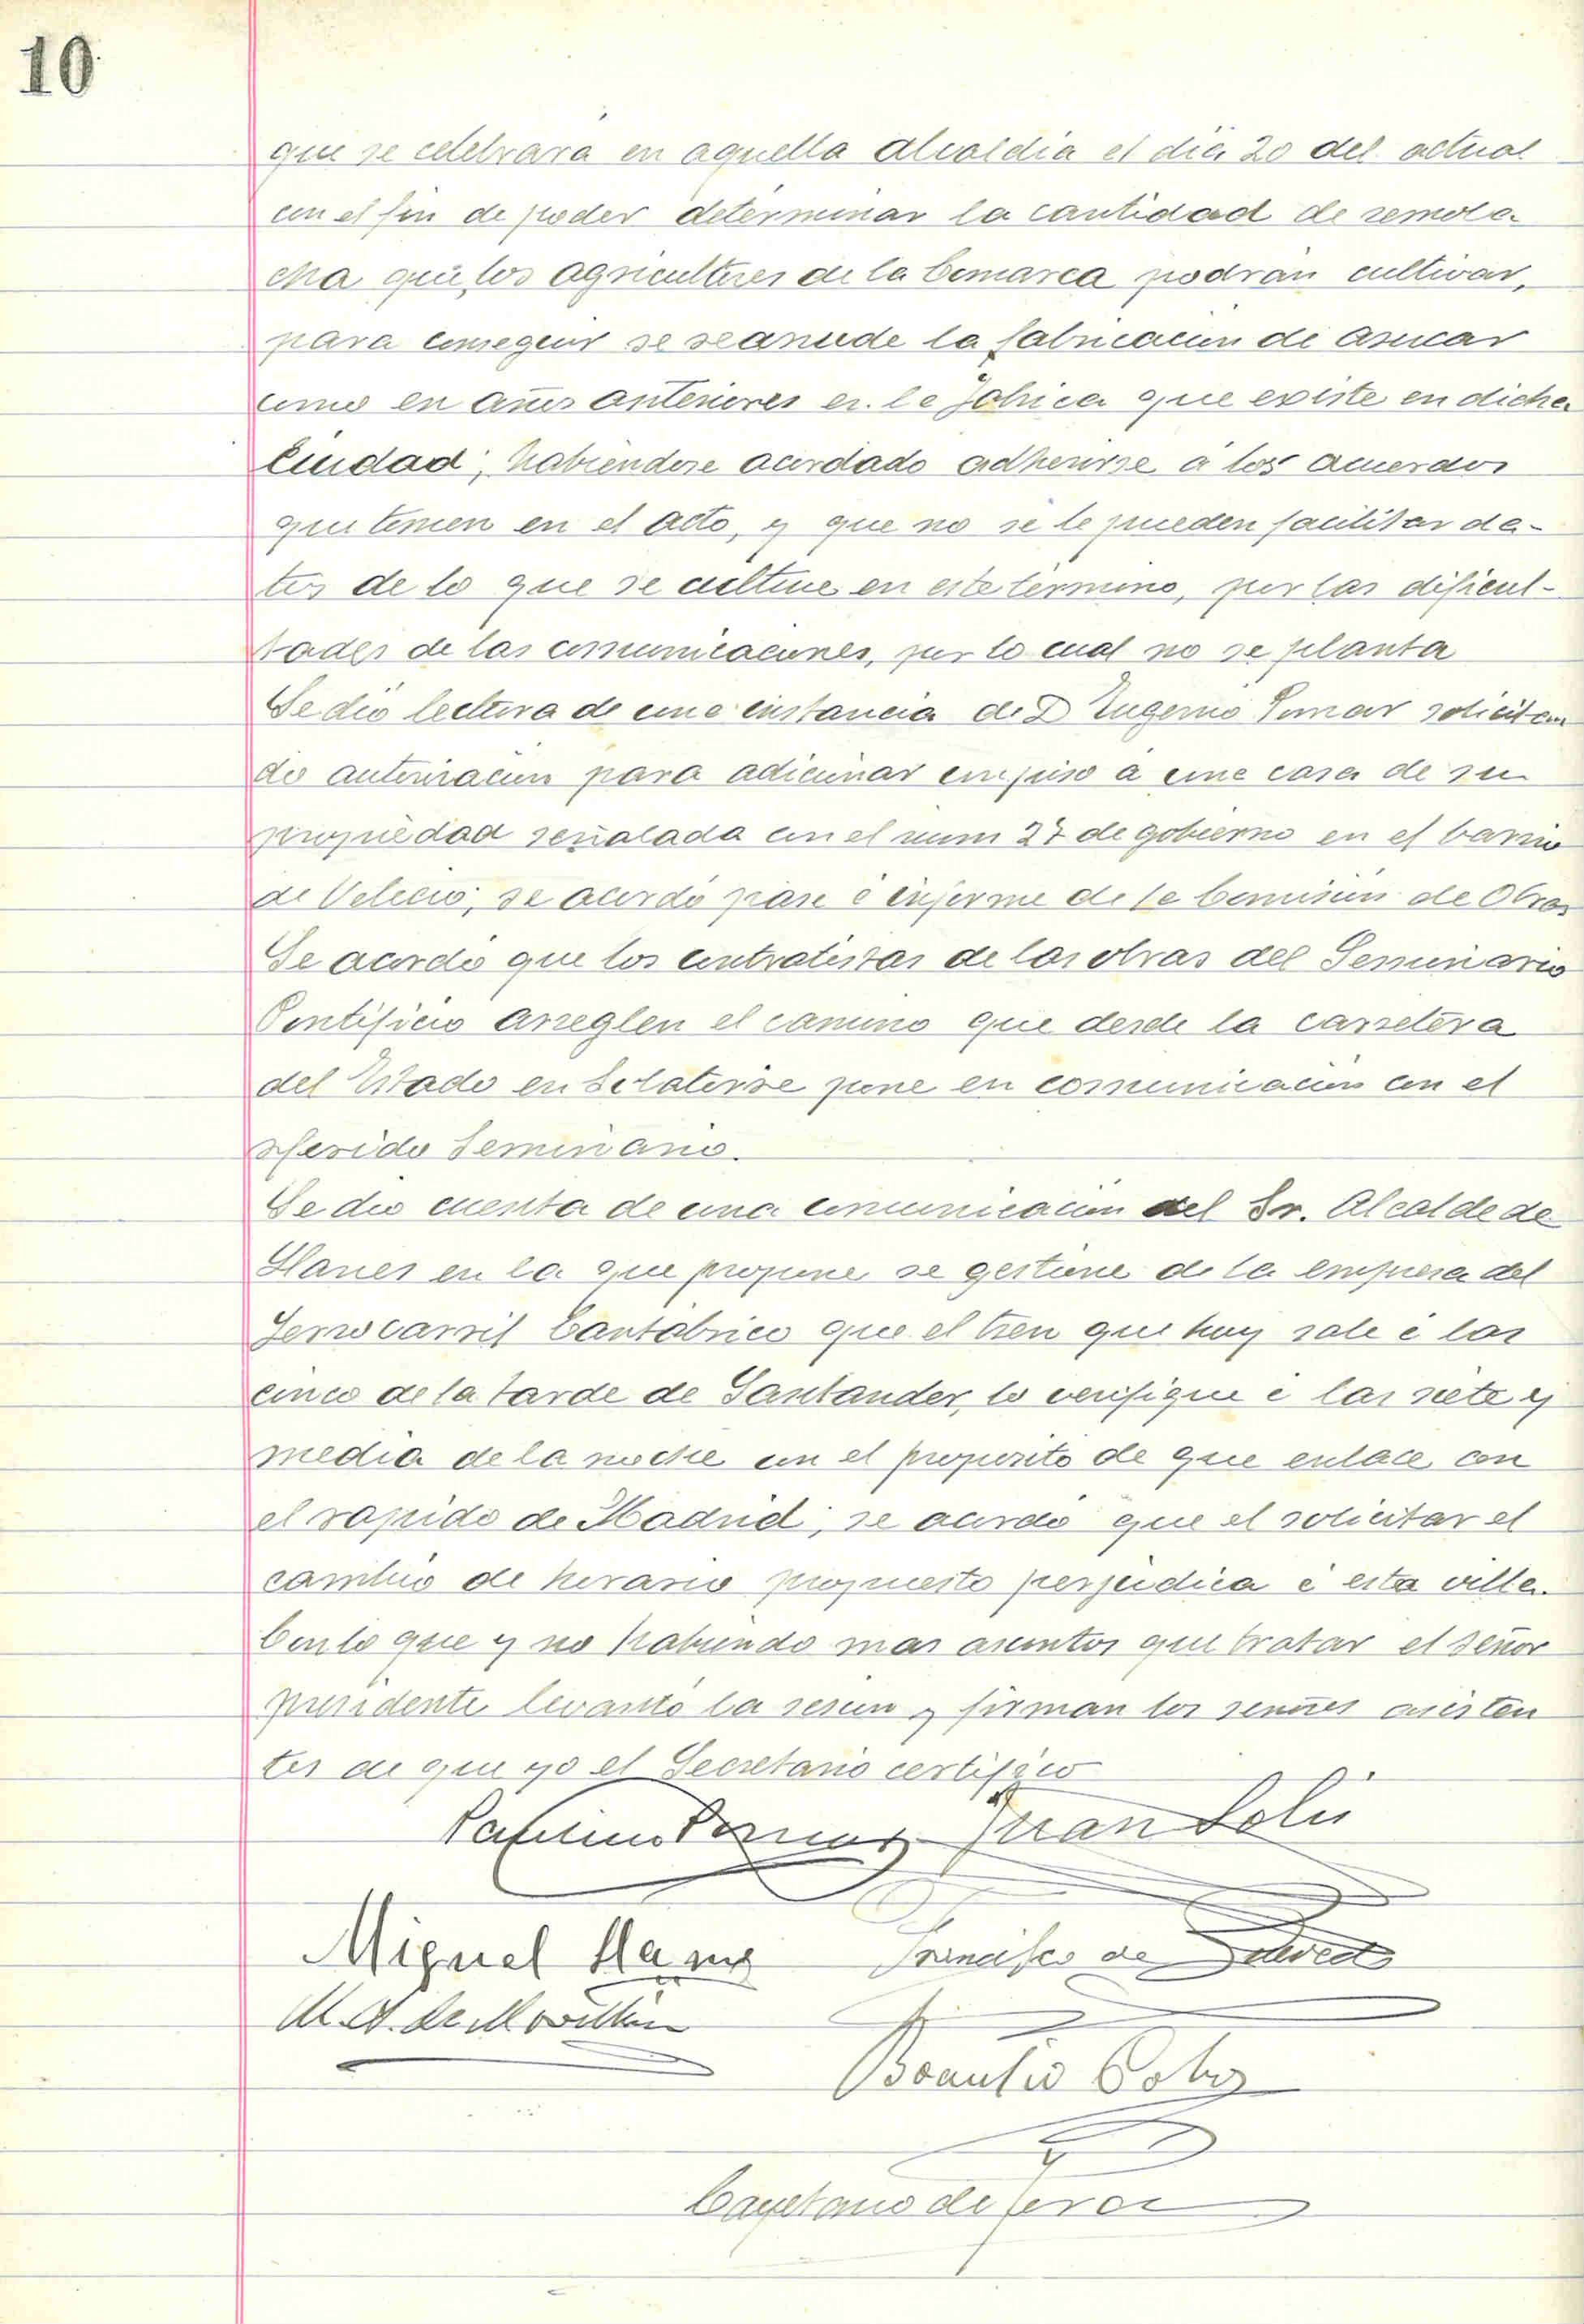 10
que se celebrará en aquella alcaldía el día 20 del actual
con el fin de poder determinar la cantidad de remola-
cha que los agricultores de la Comarca podrán cultivar,
para conseguir se reanude la fabricación de azucar
como en años anteriores en la fábrica que existe en dicha
Ciudad; habiendose acordado adherirse á los acuerdos
que tomen en el acto, y que no se le pueden facilitar da-
tos de lo que se cultive en este término, por las dificul-
tades de las comunicaciones, por lo cual no se planta
Se dió lectura de una instancia de D Eugenio Pomar solicitan
do autorización para adicionar un piso á una casa de su
propiedad señalada con el num 27 de gobierno en el barrio
de Velecio; se acordó pase á informe de la Comisión de Obras
Se acordó que los contratistas de las obras del Seminario
Pontificio arreglen el camino que desde la carretera
del Estado en Solatorre pone en comunicación con el
referido Seminario.
Se dió cuenta de una comunicación del Sr. Alcalde de
Llanes en la que propone se gestione de la empresa del
Ferrocarril Cantábrico que el tren que hoy sale á las
cinco de la tarde de Santander, lo verifique á las siete y
media de la noche con el proposito de que enlace con
el rapido de Madrid; se acordó que el solicitar el
cambio de horario propuesto perjudica á esta villa.
Con lo que y no habiendo mas asuntos que tratar el señor
presidente levantó la sesión y firman los señores asisten
tes de que yo el Secretario certifico
Paulino Pomar Juan Solis
Miguel Llano Francisco de
M. A. de Movellán
Braulio Cobo
Cayetano de